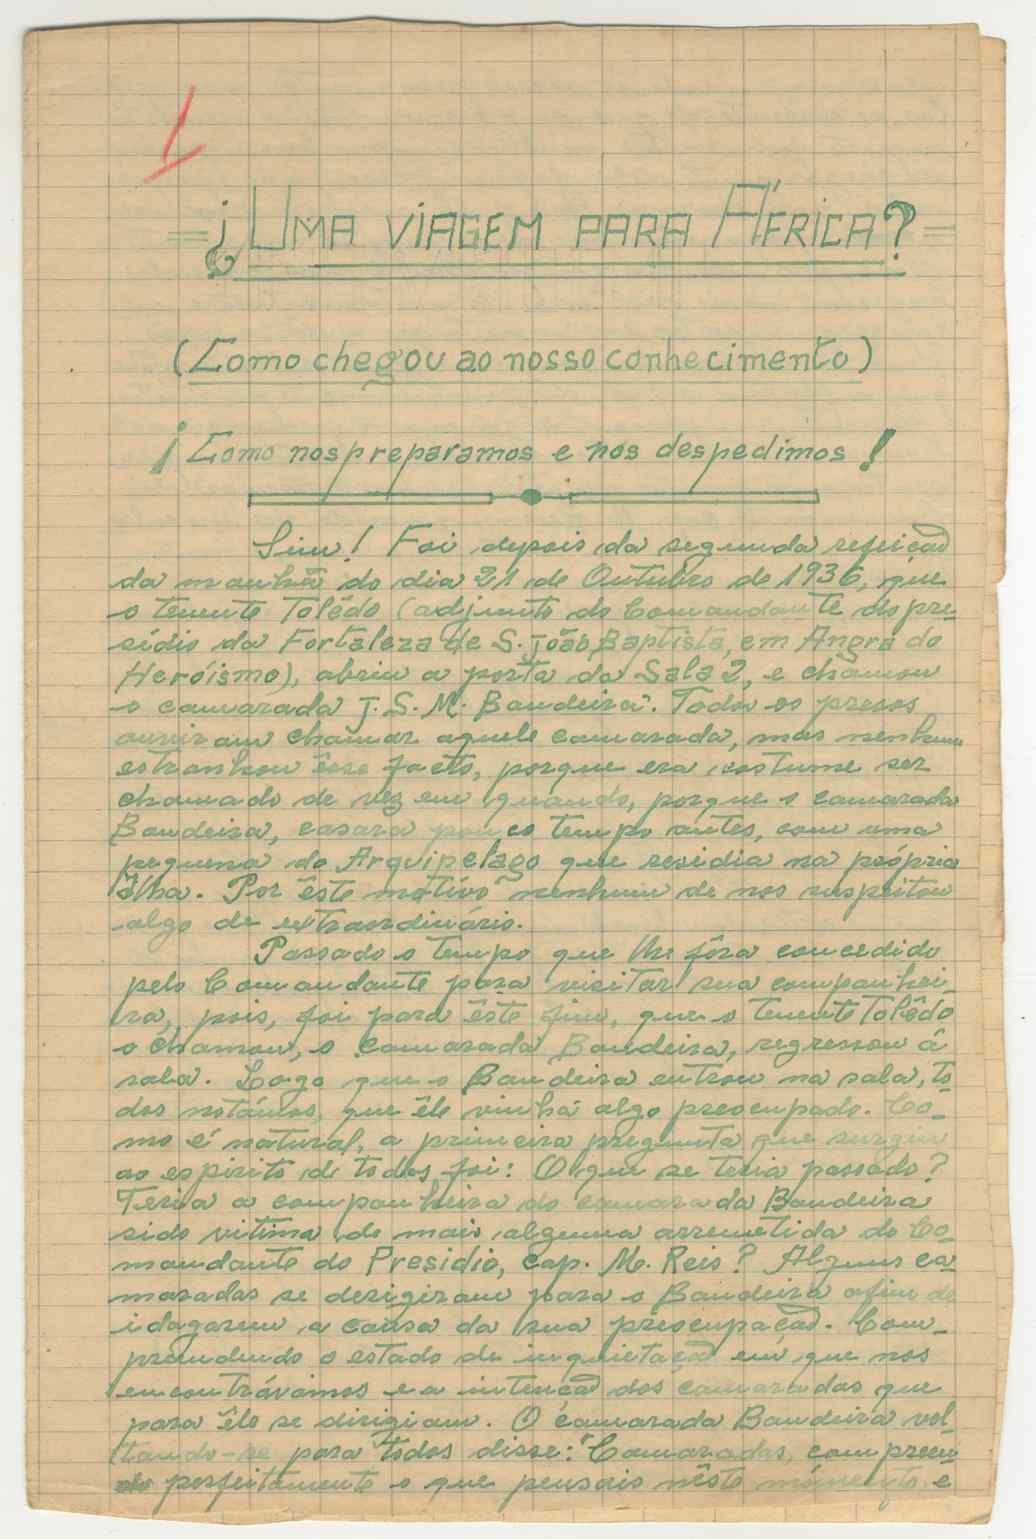 1
=¿UMA VIAGEM PARA ÁFRICA?=
(Como chegou ao nosso conhecimento)
¡Como nos preparamos e nos despedimos!
Sim! Foi depois da segunda refeição
da manhã do dia 21 de Outubro de 1936, que
o tenente Tolêdo (adjunto do Comandante do pre-
sídio da Fortaleza de S. João Baptista, em Angra do
Heroísmo), abriu a porta da Sala 2, e chamou
o camarada J. S. M. Bandeira. Todos os presos
ouviram chamar aquele camarada, mas nenhum
estranhou êsse facto, porque era costume ser
chamado de vez em quando, porque o camarada
Bandeira, casara pouco tempo antes, com uma
pequena do Arquipelago que residia na própria
ilha. Por êste motivo nenhum de nos suspeitou
algo de extraordinário.
Passado o tempo que lhe fôra concedido
pelo Comandante para visitar sua companhei-
ra, pois, foi para êste fim, que o tenente Tolêdo
o chamou, o camarada Bandeira, regressou á
sala. Logo que o Bandeira entrou na sala, to-
dos notámos, que êle vinha algo preocupado. Co-
mo é natural, a primeira pregunta que surgiu
ao espirito de todos foi: O que se teria passado?
Teria a companheira do camarada Bandeira
sido vitima de mais alguma arremetida do Co-
mandante do Presidio, cap. M. Reis? Alguns ca-
maradas se derigiram para o Bandeira afim de
idagarem a causa da sua preocupação. Com-
preendendo o estado de inquietação em que nos
encontrávamos e a intenção dos camaradas que
para êle se dirigiam. O camarada Bandeira vol-
tando-se para todos disse: "Camaradas, compreen-
do perfeitamente o que pensais nêste momento e